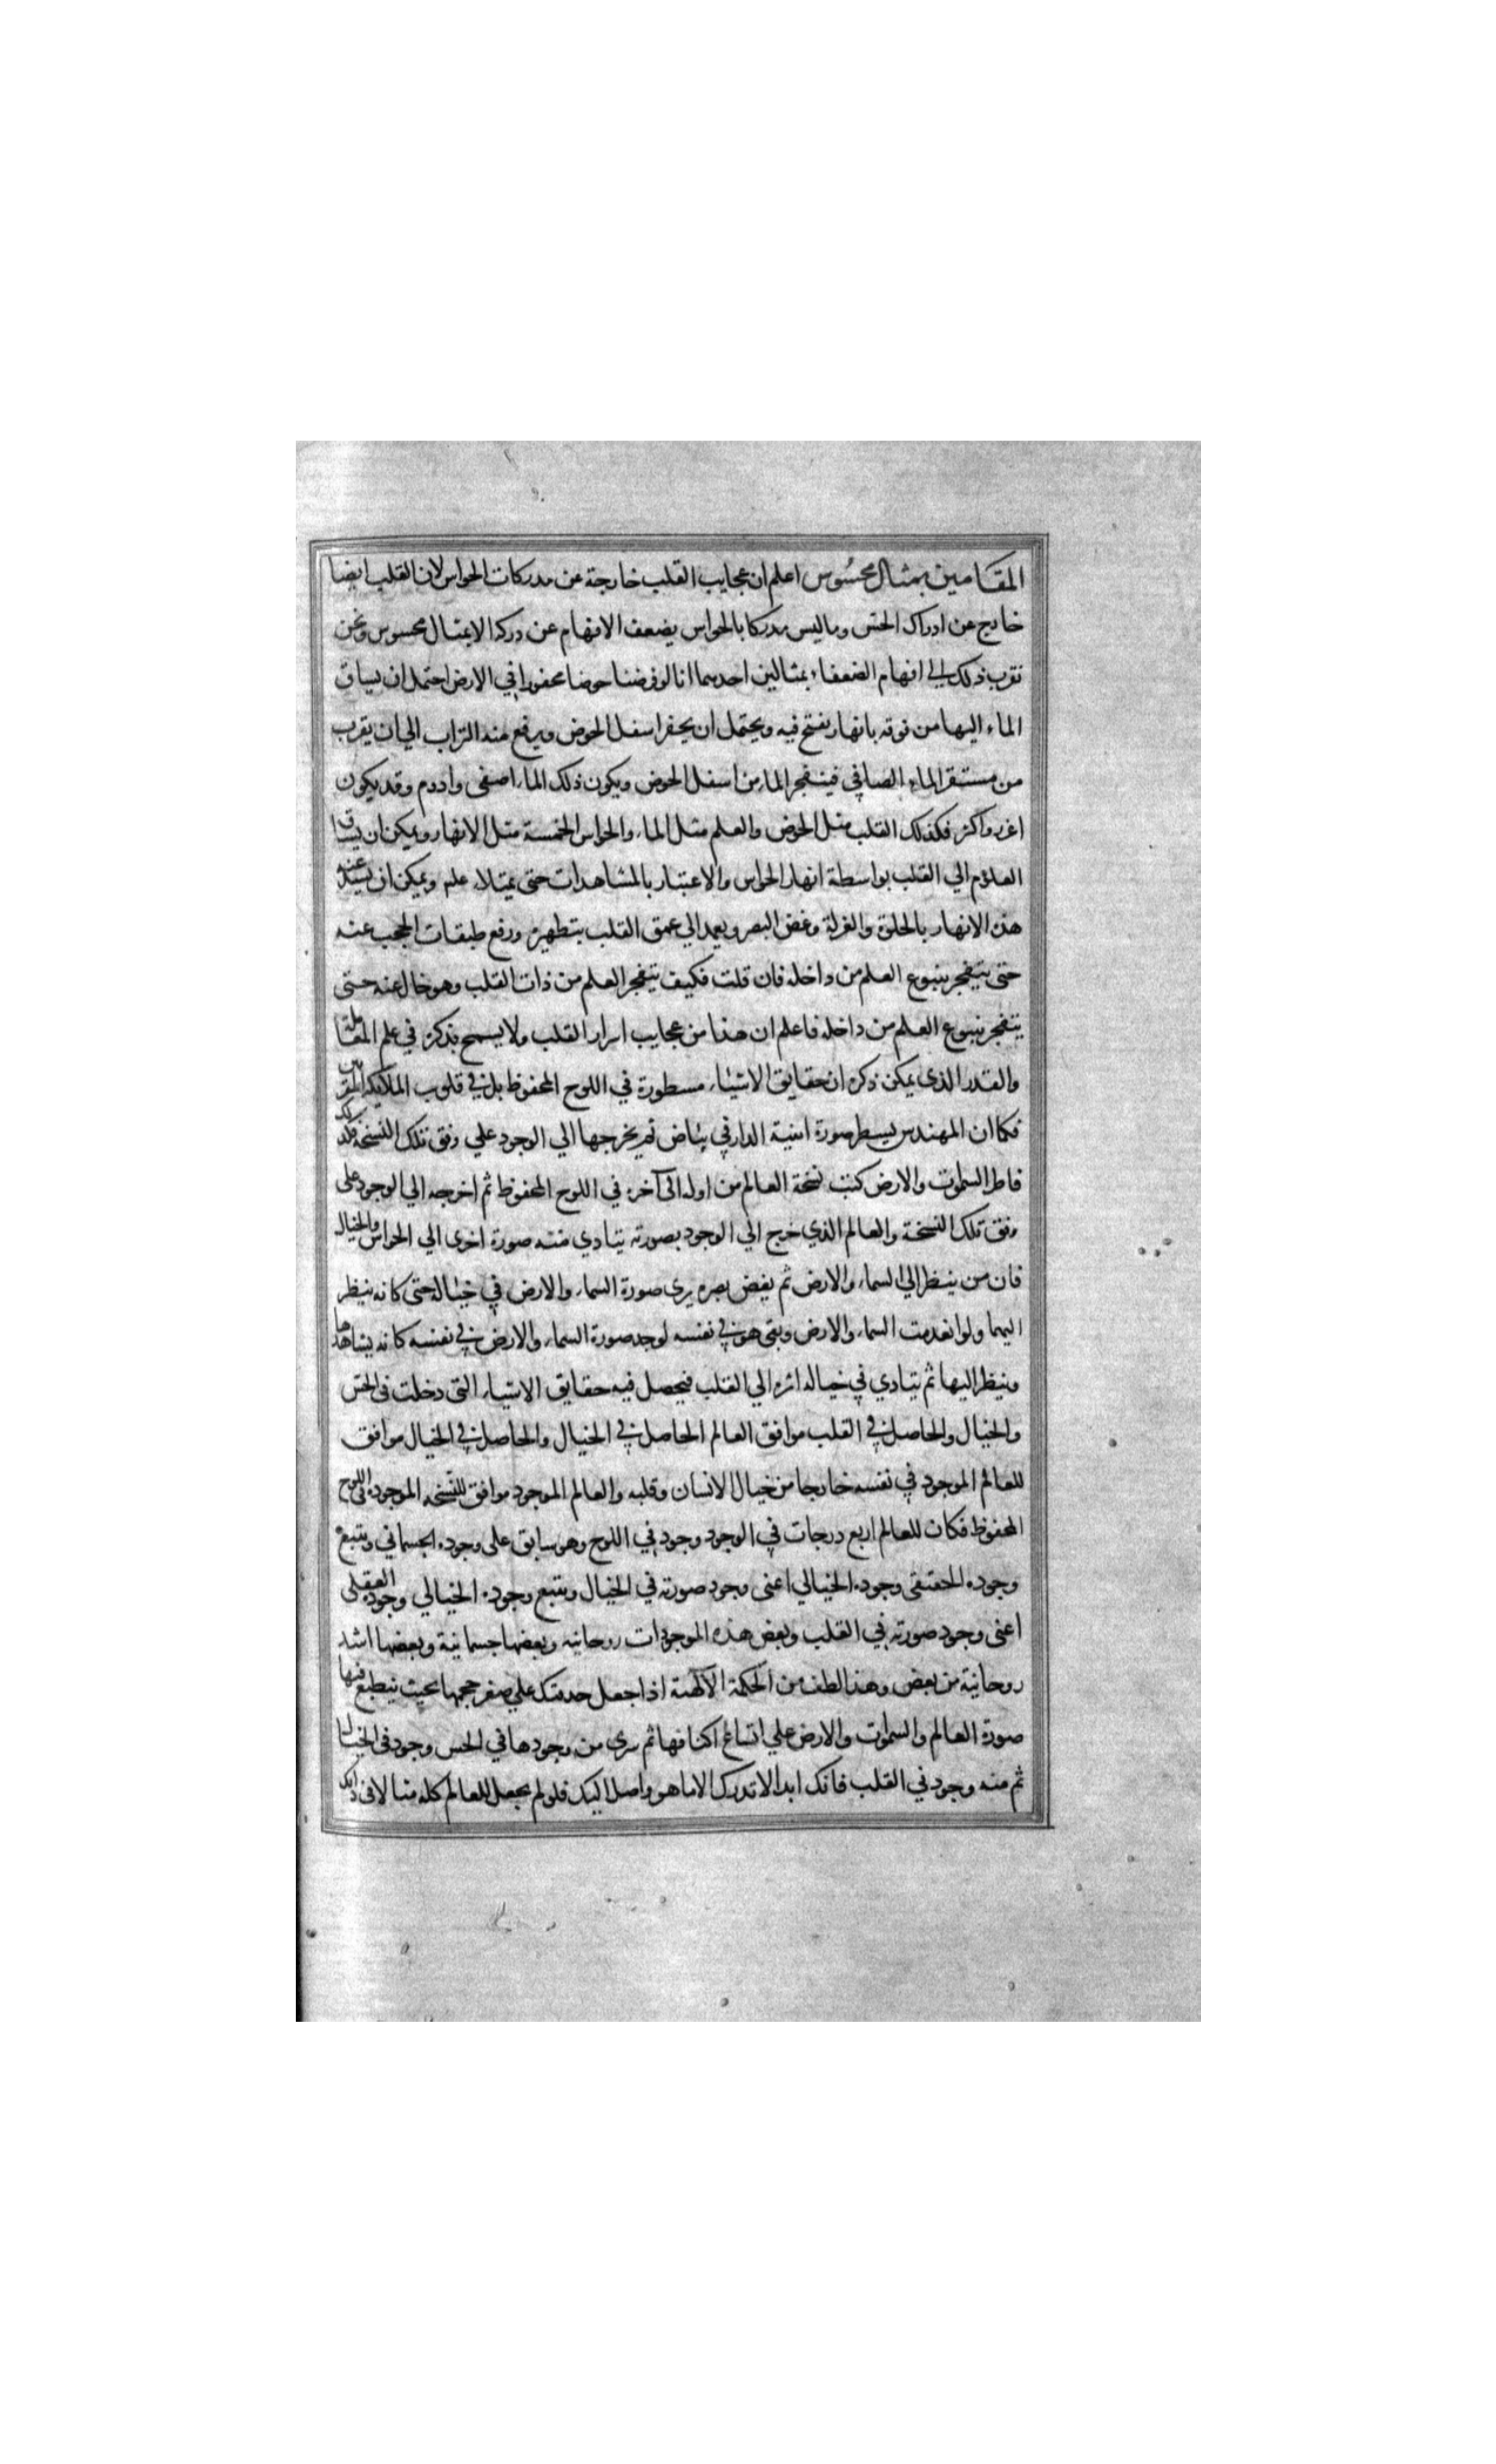 المقامين بمثال محسُوس اعلم ان عجايب القلب خارجة عن مدركات الحواس لان القلب ايضا
خارج عن ادراك الحس وما ليس مدركا بالحواس يضعف الافهام عن دركه الا بمثال محسوس ونحن
نقرب ذلك الي افهام الضعفاء بمثالين احدهما انا لو فرضنا حوضا محفورا في الارض احتمل ان يساق
الماء اليها من فوقه بانهار يفتح فيه ويحتمل ان يحفر اسفل الحوض ويرفع منه التراب الي ان يقرب
من مستقر الماء الصافي فينفجر الماء من اسفل الحوض ويكون ذلك الماء اصفى وادوم وقد يكون
اغزر واكثر فكذلك القلب مثل الحوض والعلم مثل الماء والحواس الخمسة مثل الانهار ويمكن ان يساق
العلوم الي القلب بواسطة انهار الحواس والاعتبار بالمشاهدات حتى يمتلاء علم ويمكن ان يسد عنه
هذه الانهار بالخلوة والعزلة وغض البصر ويعمد الي عمق القلب بتطهيره ورفع طبقات الحجب عنه
حتى يتفجر ينبوع العلم من داخله فان قلت فكيف يتفجر العلم من ذات القلب وهو خال عنه حتى
يتفجر ينبوع العلم من داخله فاعلم ان هذا من عجايب اسرار القلب ولا يسمح بذكره في علم المعاملة
والقدر الذى يمكن ذكره ان حقايق الاشياء مسطورة في اللوح المحفوظ بل في قلوب الملائكه المقربين
فكما ان المهندس يسطر صورة ابنية الدار في بياض ثم يخرجها الي الوجود علي وفق تلك النسخة فكذلك
فاطر السموات والارض كتب نسخة العالم من اوله الى آخره في اللوح المحفوظ ثم اخرجه الي الوجود على
وفق تلك النسخة والعالم الذي خرج الي الوجود بصورته يتادي منه صورة اخرى الي الحواس والخيال
فان من ينظر الي السماء والارض ثم يغض بصره يرى صورة السماء والارض في خياله حتى كانه ينظر
اليهما ولو انعدمت السماء والارض وبقى هو في نفسه لوجد صورة السماء والارض في نفسه كانه يشاهدها
وينظر اليها ثم يتادي في خياله اثره الي القلب فيحصل فيه حقايق الاشياء التى دخلت فى الحس
والخيال والحاصل في القلب موافق العالم الحاصل في الخيال والحاصل في الخيال موافق
للعالم الموجود في نفسه خارجا من خيال الانسان وقلبه والعالم الموجود موافق للنسخه الموجوده فى اللوح
المحفوظ فكان للعالم اربع درجات في الوجود وجود في اللوح وهو سابق على وجوده الجسماني ويتبع
وجوده الحقيقى وجوده الخيالي اعنى وجود صورته في الخيال ويتبع وجوده الخيالي وجوده العقلى
اعنى وجود صورته في القلب وبعض هذه الموجودات روحانيه وبعضها جسمانية وبعضها اشد
روحانية من بعض وهذا لطف من الحكمة الآلهية اذا جعل حدقتك علي صغر حجمها بحيث ينطبع فيها
صورة العالم والسموات والارض علي اتساع اكنافها ثم سرى من وجودها في الحس وجود فى الخيال
ثم منه وجود في القلب فانك ابدا لا تدرك الا ما هو واصل اليك فلو لم يجعل للعالم كله مثالا فى ذاتك